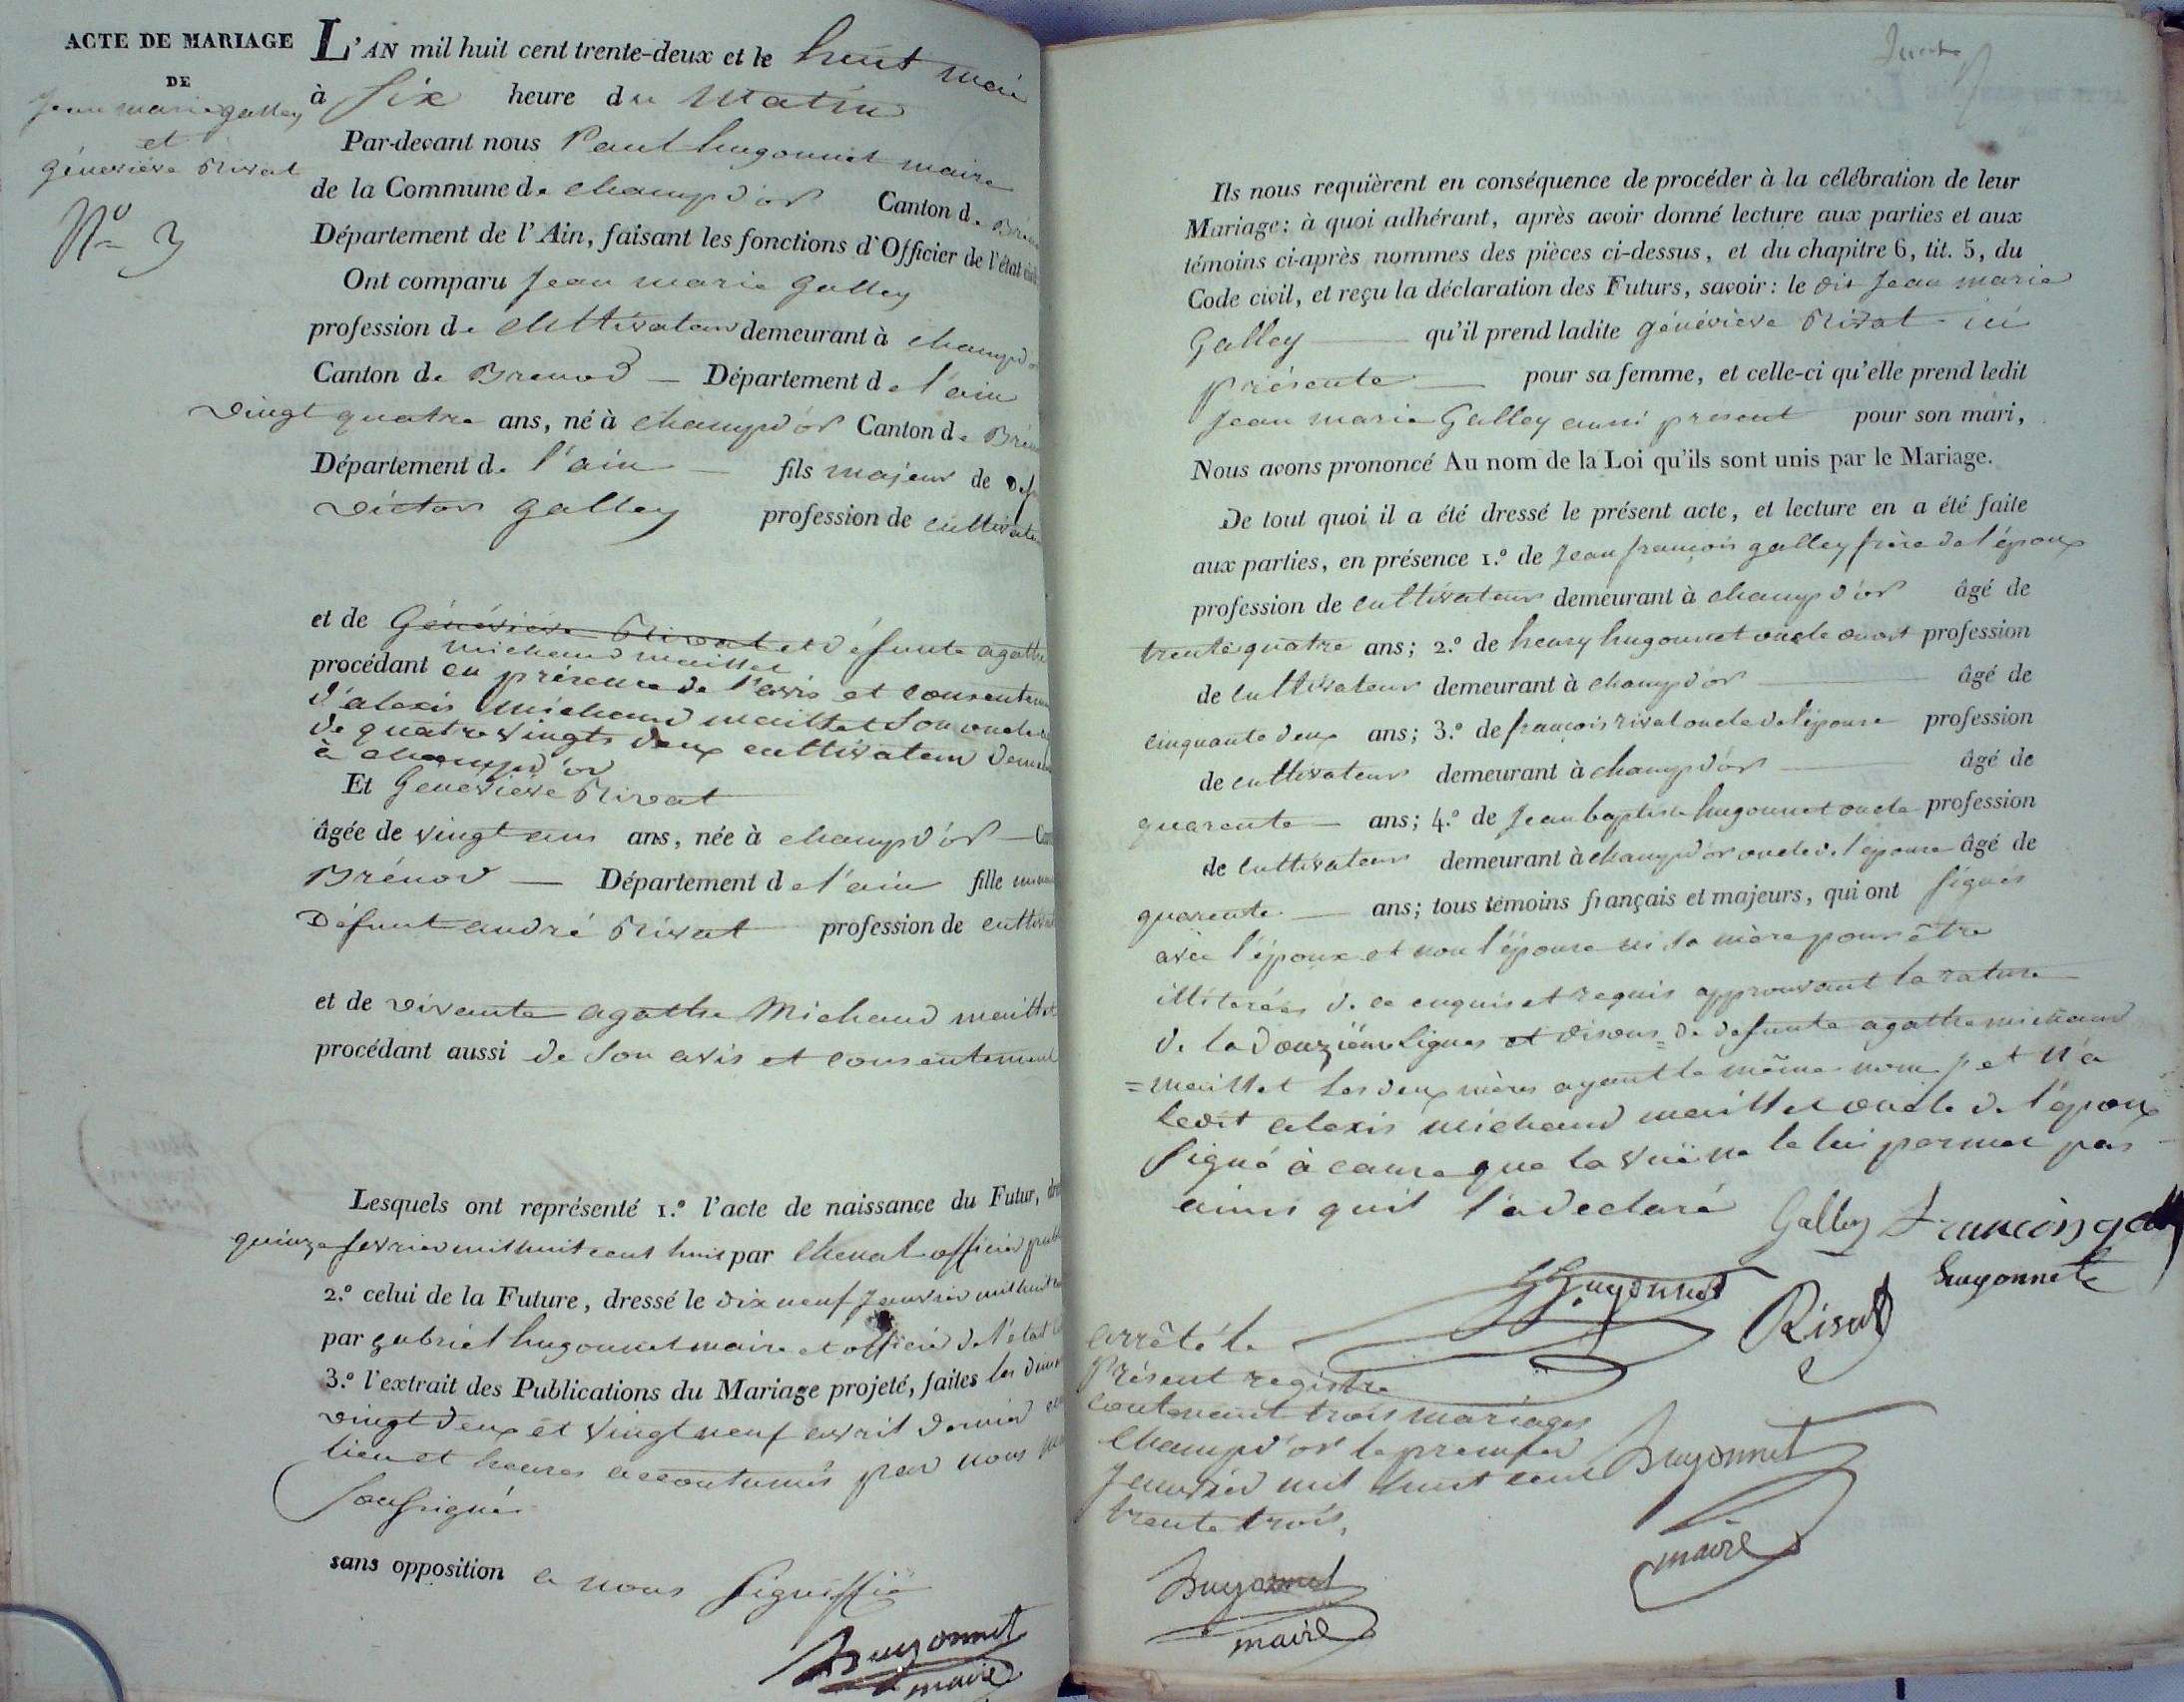 ACTE DE MARIAGE
DE
Jean marie galley
et
géneviéve Rivat
N.º 3
L'AN mil huit cent trente-deux et le huit mai
à six heure du Matin
Par-devant nous Paul hugonnet maire
de la Commune de champd'or Canton de
Département de l'Ain, faisant les fonctions d'Officier de l'état
Ont comparu Jean marie Galley
profession de Cultivateur demeurant à champd'or
Canton de Brenod — Département de l'ain
vingt quatre ans, né à champd'or Canton de
Département de l'ain — fils majeur de
victor galley profession de cultivateur
et de Généviéve Rivat et défunte agathe
michaud maillet
procédant en présence de l'avis et
d'alexis michaud maillet son oncle
de quatre vingts deux cultivateur
à champd'or
Et Geneviéve Rivat
âgée de vingt ans ans, née à champd'or —
Brénod — Département de l'ain fille
Défunt andré Rivat profession de
et de vivante agathe Michaud maillet
procédant aussi de son avis et consentement
Lesquels ont représenté 1.º l'acte de naissance du Futur,
quinze fevrier mil huit cent huit par Chenal officier
2.º celui de la Future, dressé le dix neuf Janvier
par gabriel hugonnet maire et officier de l'état
3.º l'extrait des Publications du Mariage projeté, faites les
vingt deux et vingt neuf avril dernier
lieu et heures accoutumés par nous
soussignés
sans opposition a nous signiffié
hugonnet
maire
Ils nous requièrent en conséquence de procéder à la célébration de leur
Mariage: à quoi adhérant, après avoir donné lecture aux parties et aux
témoins ci-après nommes des pièces ci-dessus, et du chapitre 6, tit. 5, du
Code civil, et reçu la déclaration des Futurs, savoir: le dit Jean marie
Galley — qu'il prend ladite généviéve Rivat ici
présente — pour sa femme, et celle-ci qu'elle prend ledit
Jean marie Galley aussi present pour son mari,
Nous avons prononcé Au nom de la Loi qu'ils sont unis par le Mariage.
De tout quoi il a été dressé le présent acte, et lecture en a été faite
aux parties, en présence 1.º de Jean françois galley frère de l'époux
profession de cultivateur demeurant à champd'or âgé de
trente quatre ans; 2.º de henry hugonnet oncle profession
de cultivateur demeurant à champd'or — âgé de
cinquante deux ans; 3.º de françois rivat oncle de l'épouse profession
de cultivateur demeurant à champd'or — âgé de
quarente — ans; 4.º de Jean baptiste hugonnet oncle profession
de cultivateur demeurant à champd'or oncle de l'épouse âgé de
quarente — ans; tous témoins français et majeurs, qui ont signés
avec l'époux et non l'épouse ni sa mère pour être
illiterées de ce enquis et requis approuvant la rature
de la douzième lignes et disons = de defunte agathe michaud
= maillet les deux mères ayant le même nom et n'a
ledit alexis michaud maillet oncle de l'époux
signé à cause que la vuë ne le lui permet pas
ainsi quil l'a declaré
Galley francois galley
hugonnet hugonnet
Rivat
arrêté le
Présent registre
contenant trois mariages
Champd'or le premier
Janvier mil huit cent
trente trois.
hugonnet
maire
hugonnet
maire